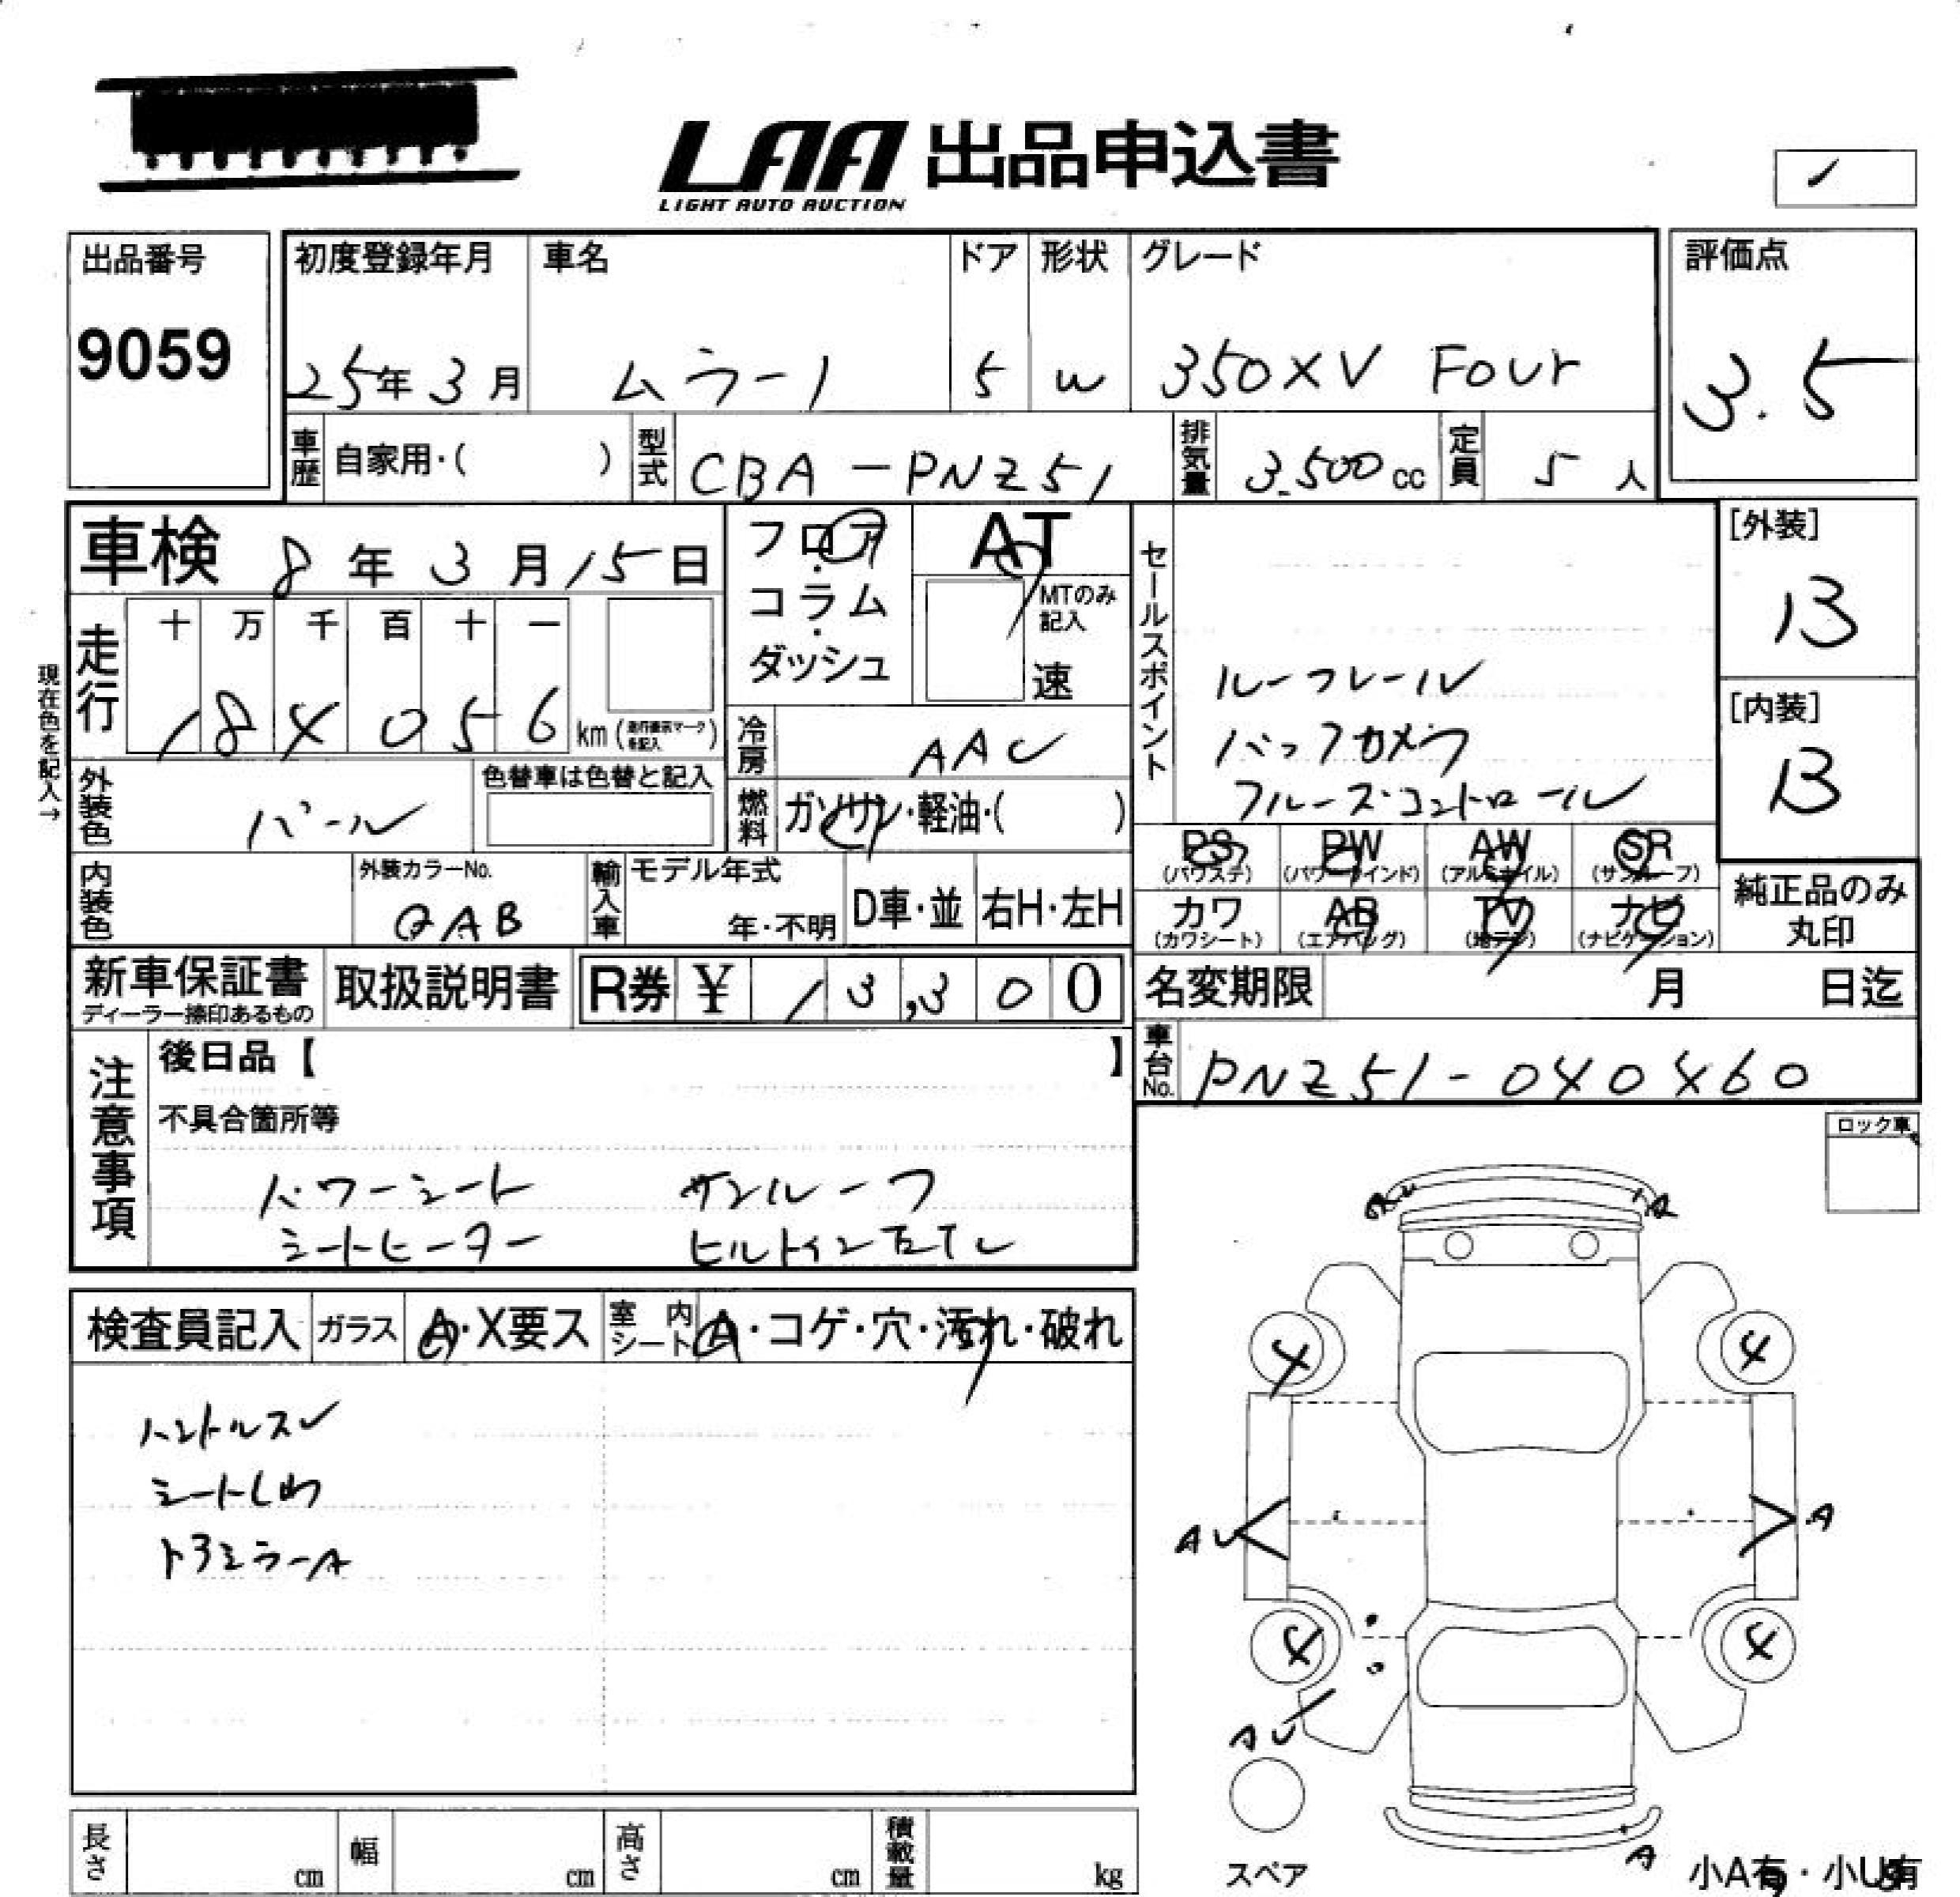 LAA 出品申込書
LIGHT AUTO AUCTION
出品番号
9059
初度登録年月 車名 ドア 形状 グレード
25年3月 ムラーノ 5 W 350XV Four
評価点
3.5
車歴 自家用・( ) 型式 CBA-PNZ51 排気量 3.500cc 定員 5人
車検 8年3月15日
フロア・コラム・ダッシュ
AT
MTのみ記入
速
セールスポイント
ルーフレール
バックカメラ
クルーズコントロール
[外装]
B
[内装]
B
現在色を記入→
走行 十 万 千 百 十 一
1 8 4 0 5 6 km (走行表示マークを記入)
冷房 AAC
外装色 パール
色替車は色替と記入
燃料 ガソリン・軽油・( )
内装色
外装カラーNo.
QAB
輸入車 モデル年式
年・不明 D車・並 右H・左H
PS PW AW SR
(パワステ) (パワーウインド) (アルミホイル) (サンルーフ)
カワ AB TV ナビ
(カワシート) (エアバッグ) (地デジ) (ナビゲーション)
純正品のみ
丸印
新車保証書
ディーラー捺印あるもの
取扱説明書 R券 ¥ 13,300
名変期限 月 日迄
車台No. PNZ51-040460
注意事項
後日品【 】
不具合箇所等
パワーシート サンルーフ
シートヒーター ビルトインETC
ロック車
検査員記入 ガラス A・X要ス 室内シート A・コゲ・穴・汚れ・破れ
ハンドルスレ
シートしわ
ドアミラーA
A
4 4
AU A
4 4
AU
A
スペア
小A有・小U有
長さ cm 幅 cm 高さ cm 積載量 kg